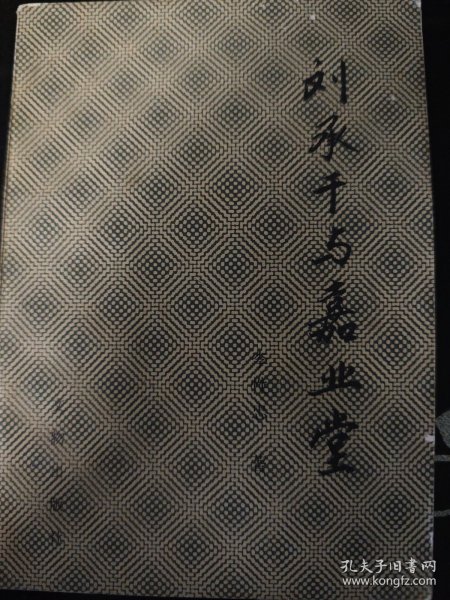 刘承干与嘉业堂
李性忠 著
文物出版社
孔夫子旧书网
www.kongfz.com